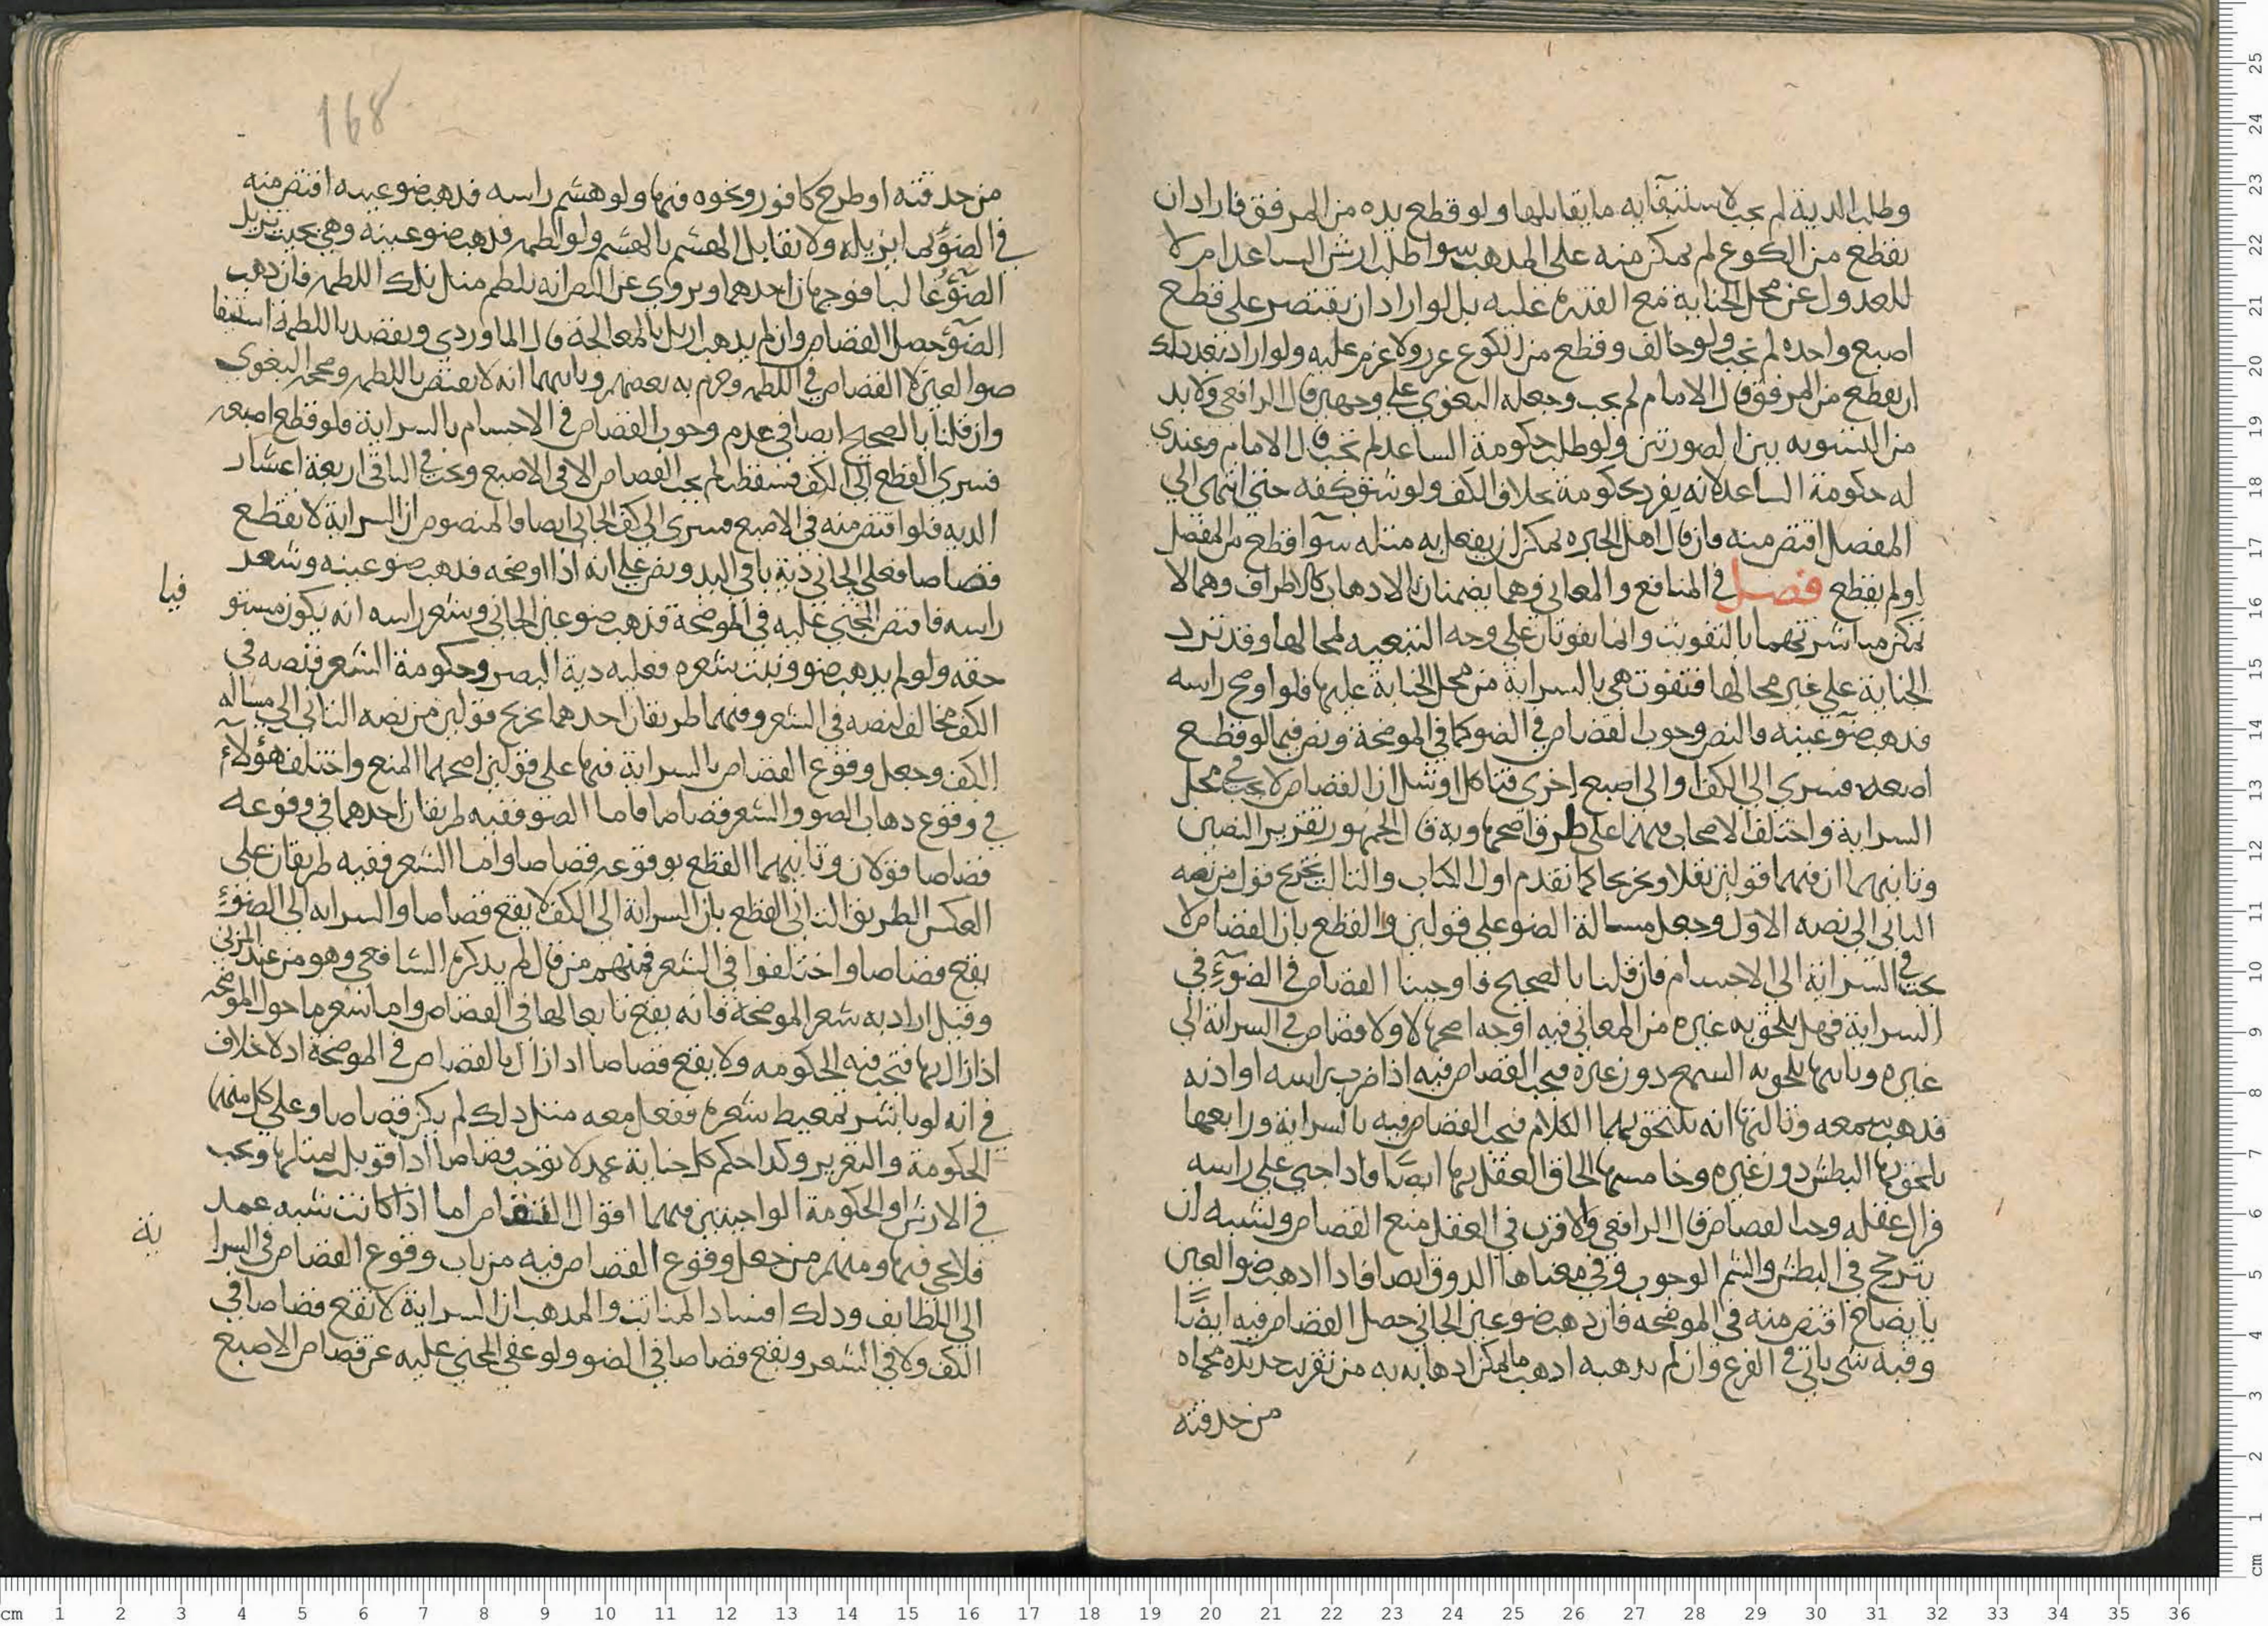 وطلب الدية لم يجب لاستيفائه ما يقابلها ولو قطع يده من المرفق فاراد ان
يقطع من الكوع لم يمكن منه على المذهب سوا طلب ارش الساعد ام لا
للعدول عن محل الجناية مع القدرة عليه بل لو اراد ان يقتصر على قطع
اصبع واحده لم يجب ولو خالف وقطع من الكوع عزر ولا غرم عليه ولو اراد بعد ذلك
ان يقطع من المرفق قال الامام لم يجب وجعله البغوي على وجهين قال الرافعي ولا بد
من التسويه بين الصورتين ولو طلب حكومة الساعد لم يجب قال الامام وعندي
له حكومة الساعد لانه يفرد بحكومة بخلاف الكف ولو شق كفه حتى انتهى الي
المفصل اقتص منه فان قال اهل الخبره يمكن ان يفعل به مثله سوآ قطع من المفصل
او لم يقطع فصل في المنافع والمعاني وهما يضمنان بالاذهاب كالاطراف وهما لا
يمكن مباشرتهما بالتفويت وانما يفوتان على وجه التبعيه لمحالها وقد ترد
الجناية على غير محالها فتفوت هي بالسراية من محل الجناية عليها فلو اوضح راسه
فذهب ضوء عينه فالنص وجوب القصاص في الضو كما في الموضحة ونص فيما لو قطع
اصبعه فسرى الى الكف او الى اصبع اخرى فتاكل او شل ان القصاص لا يجب في محل
السراية واختلف الاصحاب فيهما على طرق اصحها وبه قال الجمهور تقرير النصين
وثانيهما ان فيهما قولين نقلا وتخريجا كما تقدم اول الكتاب والثالث تخريج قول من نصه
الثاني الى نصه الاول وجعل مسالة الضو على قولين والقطع بان القصاص لا
يجب في السراية الى الاجسام فان قلنا بالصحيح فاوجبنا القصاص في الضوء في
السراية فهل يلحق به غيره من المعاني فيه اوجه اصحها لا ولا قصاص في السراية الى
غيره وثانيها يلحق به السمع دون غيره فيجب القصاص فيه اذا ضرب راسه او اذنه
فذهب سمعه وثالثها انه يلتحق بهما الكلام فيجب القصاص فيه بالسراية ورابعها
يلحق بها البطش دون غيره وخامسها الحاق العقل بها ايضًا فاذا جنى على راسه
فزال عقله وجب القصاص قال الرافعي والاقرب في العقل منع القصاص ولشبه ان
يترجح في البطش والشم الوجوب وفي معناها الذوق ايضا فاذا اذهب ضوا العين
بايضاح اقتص منه في الموضحه فان ذهب ضو عين الجاني حصل القصاص فيه ايضًا
وفيه شي ياتي في الفرع وان لم يذهبه اذهب ما يمكن اذهابه به من تقريب حديده محماه
من حدقته
168
من حدقته او طرح كافور ونحوه فيها ولو هشم راسه فذهب ضو عينه اقتص منه
في الضوء بما يزيله ولا يقابل الهشم بالهشم ولو لطمه فذهب ضو عينه وهي بحيث تزيل
الضوء غالبا فوجهان احدهما ويروي عن النص انه يلطم مثل تلك اللطمه فان ذهب
الضوء حصل القصاص وان لم يذهب ازيل بالمعالجة قال الماوردي ويقصد باللطمة استيفا
ضوا العين لا القصاص في اللطمه وجزم به بعضهم وثانيهما انه لا يقتص باللطمه وصححه البغوي
وان قلنا بالصحيح ايضا في عدم وجوب القصاص في الاجسام بالسراية فلو قطع اصبعه
فسرى القطع الى الكف فسقطت لم يجب القصاص الا في الاصبع وتجب في الباقي اربعة اعشار
الديه فلو اقتص منه في الاصبع فسرى الى كف الجاني ايضا فالمنصوص ان السراية لا تقطع
قصاصا فعلى الجاني دية باقي اليد ونص على انه اذا اوضحه فذهب ضو عينه وشعر
راسه فاقتص المجني عليه في الموضحة فذهب ضو عين الجاني وشعر راسه انه يكون مستو
فيا
حقه ولو لم يذهب ضوه ونبت شعره فعليه دية البصر وحكومة الشعر فنصه في
الكف مخالف لنصه في الشعر وفيهما طريقان احدهما تخريج قولين من نصه الثاني الى مساله
الكف وجعل وقوع القصاص بالسراية فيها على قولين اصحهما المنع واختلف هؤلاء
في وقوع ذهاب الضو والشعر قصاصا فاما الضو ففيه طريقان احدهما في وقوعه
قصاصا قولان وثانيهما القطع بوقوعه قصاصا واما الشعر ففيه طريقان على
العكس الطريق الثاني القطع بان السراية الى الكف لا يقع قصاصا والسرايه الى الضوء
يقع قصاصا واختلفوا في الشعر فمنهم من قال لم يذكره الشافعي وهو من عند المزني
وقيل اراد به شعر الموضحة فانه يقع تابعا لها في القصاص واما شعر ما حول الموضحه
اذا زال بها فتجب فيه الحكومه ولا يقع قصاصا اذا زال بالقصاص في الموضحة اذ لا خلاف
في انه لو باشر تمعيط شعره ففعل معه مثل ذلك لم يكن قصاصا وعلى كل منهما
الحكومة والتعزير وكذا حكم كل جناية عمد لا توجب قصاصا اذا قوبلت بمثلها وتجب
في الارش او الحكومة الواجبتين فيهما اقوال القصاص اما اذا كانت شبه عمد
فلا يجي فيها ومنهم من جعل وقوع القصاص فيه من باب وقوع القصاص في السرا
ية
الى اللطايف وذلك افساد المنابت والمذهب ان السراية لا تقع قصاصا في
الكف ولا في الشعر وتقع قصاصا في الضو ولو عفى المجني عليه عن قصاص الاصبع